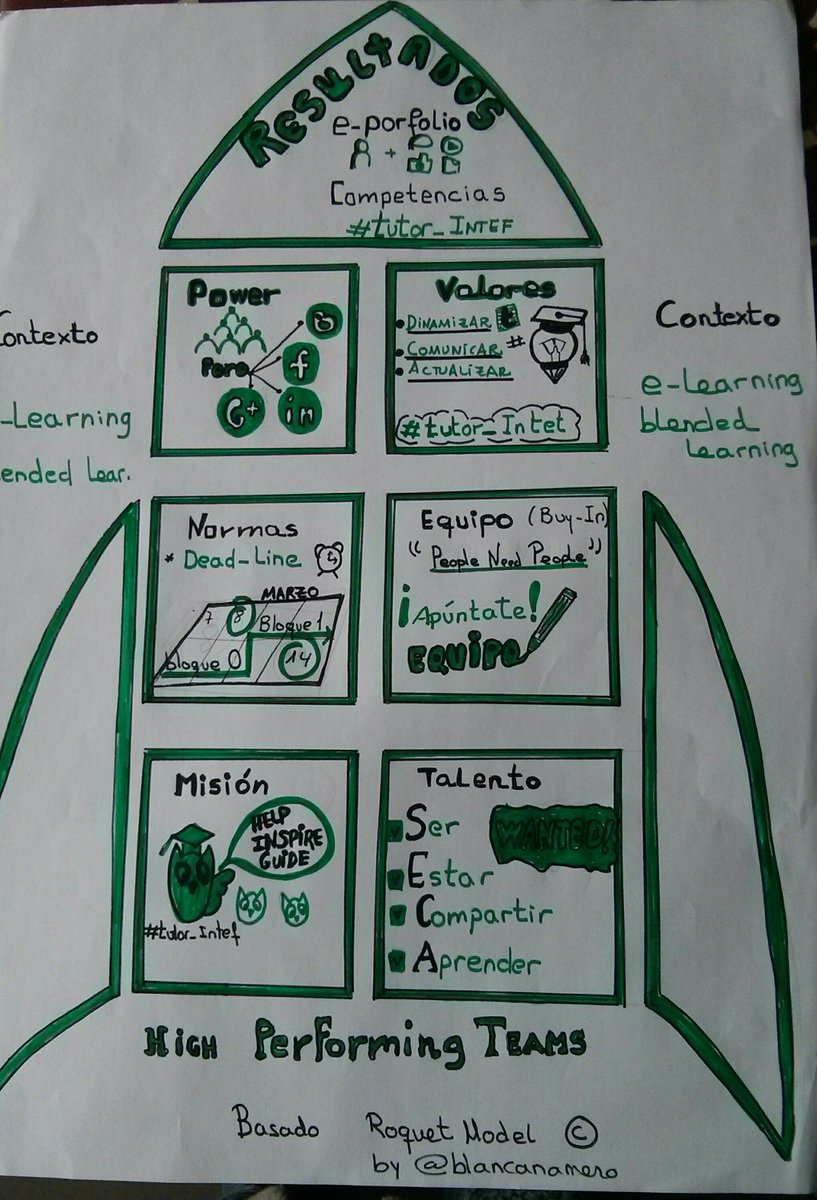 RESULTADOS
e-porfolio
+
Competencias
#tutor_INTEF
Power
Para
f
G+
in
Valores
• DINAMIZAR
• COMUNICAR #
• ACTUALIZAR
#tutor_Intef
Contexto
-Learning
ended Lear.
Contexto
e-Learning
blended
Learning
Normas
* Dead-Line
MARZO
7 8 Bloque 1
bloque 0 14
Equipo (Buy-In)
"People Need People"
¡Apúntate!
EQUIPO
Misión
HELP
INSPIRE
GUIDE
#tutor_Intef
Talento
WANTED!
v Ser
v Estar
v Compartir
v Aprender
HIGH PerForming TEAMS
Basado Roquet Model ©
by @blancanamero